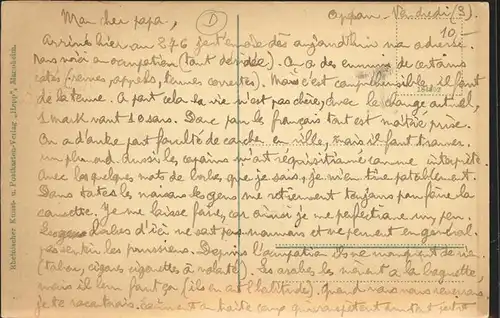 Mon cher papa,
D
Oppau - Vendredi (3)
10
Arrivé hier au 276 je t'envoie dès aujourd'hui ma adresse.
Nous voici en occupation (tant désirée). On a des ennuis de certains
côtés (revues, appels, tenues correctes). Mais c'est compréhensible il faut
de la tenue. A part cela la vie n'est pas chère, avec le change actuel,
1 mark vaut 10 sans. Donc pas le français tant est
On a d'autre part faculté de coucher en ville, mais il faut trouver
un plumard. Aussi les copains m'ont réquisitionné comme interprète
avec les quelques mots de boche que je sais, je m'en tire potablement.
Dans toutes les maisons les gens me retiennent toujours pour faire la
causette. Je me laisse faire, car ainsi je me perfectionne un peu.
Les boches d'ici ne sont pas mauvais et ne peuvent en général
pas sentir les prussiens. Depuis l'occupation ils ne manquent de rien
(tabac, cigares cigarettes à volonté). Les arabes les mènent à la baguette,
mais il leur faut ça (ils en ont l'habitude). Quand nous nous reverrons,
je te raconterai.
Rheinischer Kunst- u. Postkarten-Verlag „Hepp", Mannheim.